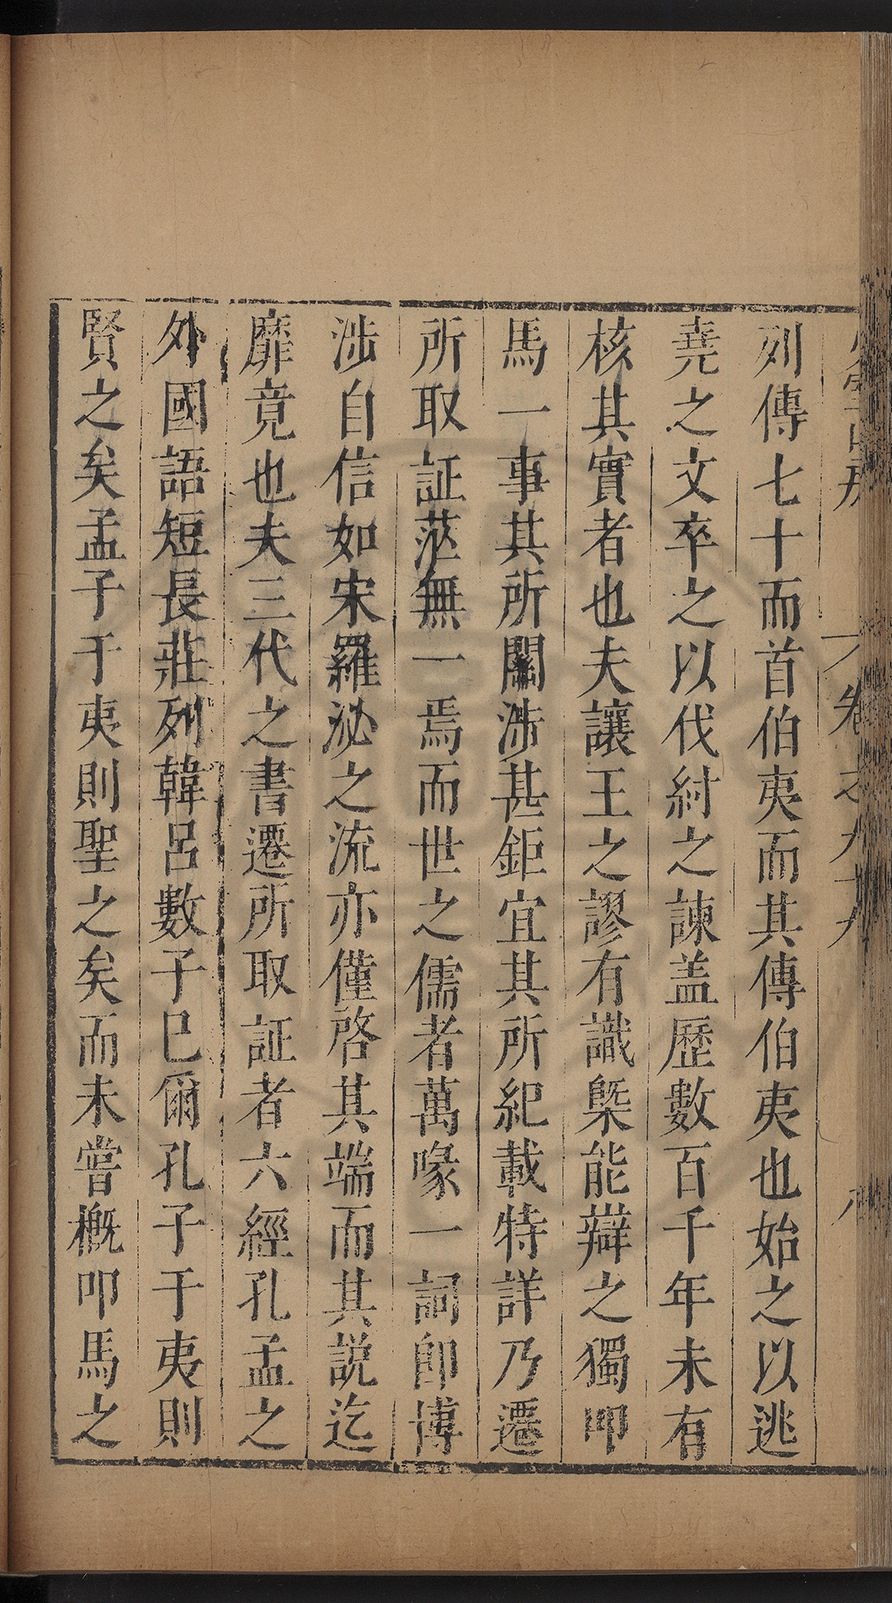 列傳七十而首伯夷而其傳伯夷也始之以逃
堯之文卒之以伐紂之諫盖歷數百千年未有
核其實者也夫讓王之謬有識槩能辯之獨叩
馬一事其所關涉甚鉅宜其所紀載特詳乃遷
所取証茫無一焉而世之儒者萬喙一詞卽博
涉自信如宋羅泌之流亦僅啓其端而其説迄
靡竟也夫三代之書遷所取証者六經孔孟之
外國語短長莊列韓呂數子巳爾孔子于夷則
賢之矣孟子于夷則聖之矣而未嘗槪叩馬之